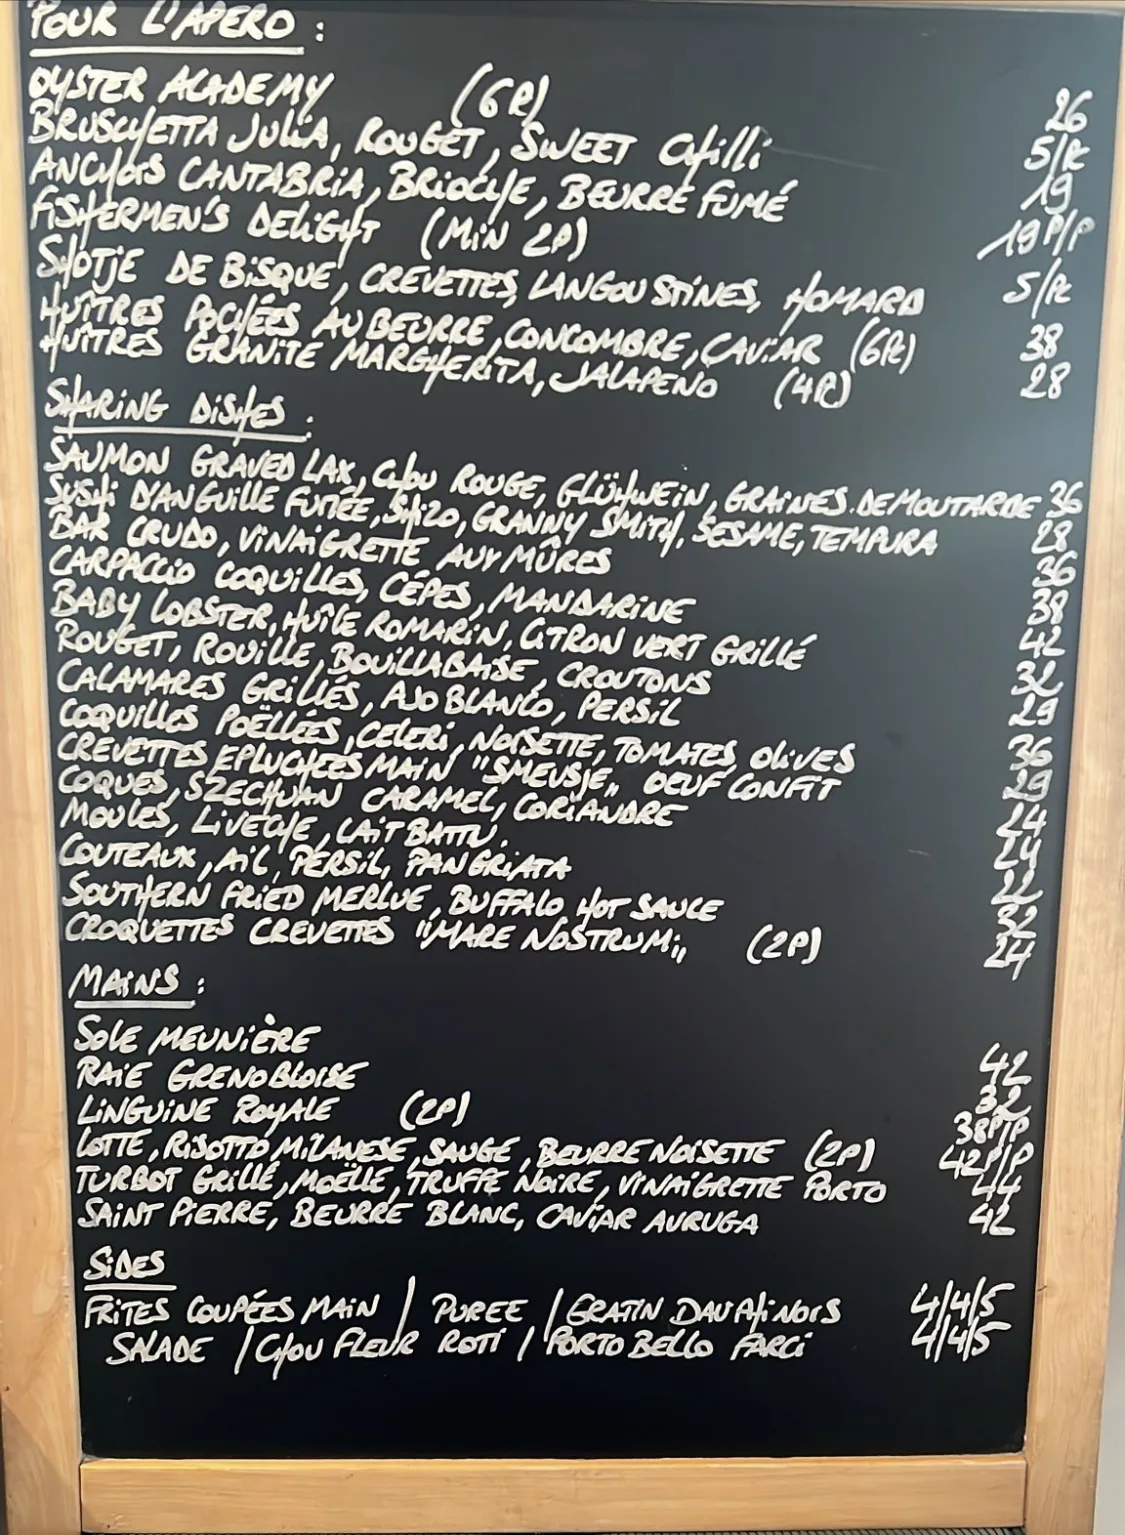 POUR L'APERO :
OYSTER ACADEMY (6P) 26
BRUSCHETTA JULIA, ROUGET, SWEET CHILLI 5/PC
ANCHOIS CANTABRIA, BRIOCHE, BEURRE FUMÉ 19
FISHERMEN'S DELIGHT (MIN 2P) 19 P/P
SHOTJE DE BISQUE, CREVETTES, LANGOUSTINES, HOMARD 5/PC
HUÎTRES POCHÉES AU BEURRE, CONCOMBRE, CAVIAR (6PC) 38
HUÎTRES GRANITÉ MARGHERITA, JALAPENO (4P) 28
SHARING DISHES :
SAUMON GRAVED LAX, CHOU ROUGE, GLÜHWEIN, GRAINES DE MOUTARDE 36
SUSHI D'ANGUILLE FUMÉE, SHIZO, GRANNY SMITH, SESAME, TEMPURA 28
BAR CRUDO, VINAIGRETTE AUX MÛRES 36
CARPACCIO COQUILLES, CÉPES, MANDARINE 38
BABY LOBSTER, HUILE ROMARIN, CITRON VERT GRILLÉ 42
ROUGET, ROUILLE, BOUILLABAISE, CROUTONS 32
CALAMARES GRILLÉS, AJO BLANCO, PERSIL 29
COQUILLES POËLLÉES, CELERI, NOISETTE, TOMATES, OLIVES 36
CREVETTES EPLUCHÉES MAIN "SMEUSJE" OEUF CONFIT 29
COQUES, SZECHUAN CARAMEL, CORIANDRE 24
MOULES, LIVECHE, LAIT BATTU. 24
COUTEAUX, AIL, PERSIL, PANGRIATA 22
SOUTHERN FRIED MERLUE, BUFFALO HOT SAUCE 32
CROQUETTES CREVETTES "MARE NOSTRUM" (2P) 24
MAINS :
SOLE MEUNIÈRE 42
RAIE GRENOBLOISE 32
LINGUINE ROYALE (2P) 38P/P
LOTTE, RISOTTO MILANESE, SAUGE, BEURRE NOISETTE (2P) 42P/P
TURBOT GRILLÉ, MOËLLE, TRUFFE NOIRE, VINAIGRETTE PORTO 44
SAINT PIERRE, BEURRE BLANC, CAVIAR AVRUGA 42
SIDES
FRITES COUPÉES MAIN / PUREE / GRATIN DAUPHINOIS 4/4/5
SALADE / CHOU FLEUR ROTI / PORTOBELLO FARCI 4/4/5